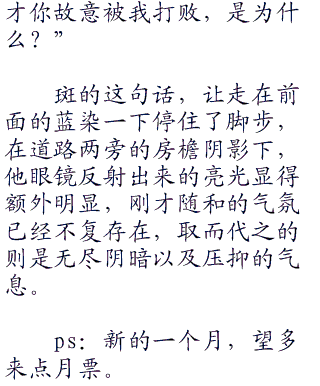 才你故意被我打败，是为什
么？”
斑的这句话，让走在前
面的蓝染一下停住了脚步，
在道路两旁的房檐阴影下，
他眼镜反射出来的亮光显得
额外明显，刚才随和的气氛
已经不复存在，取而代之的
则是无尽阴暗以及压抑的气
息。
ps：新的一个月，望多
来点月票。